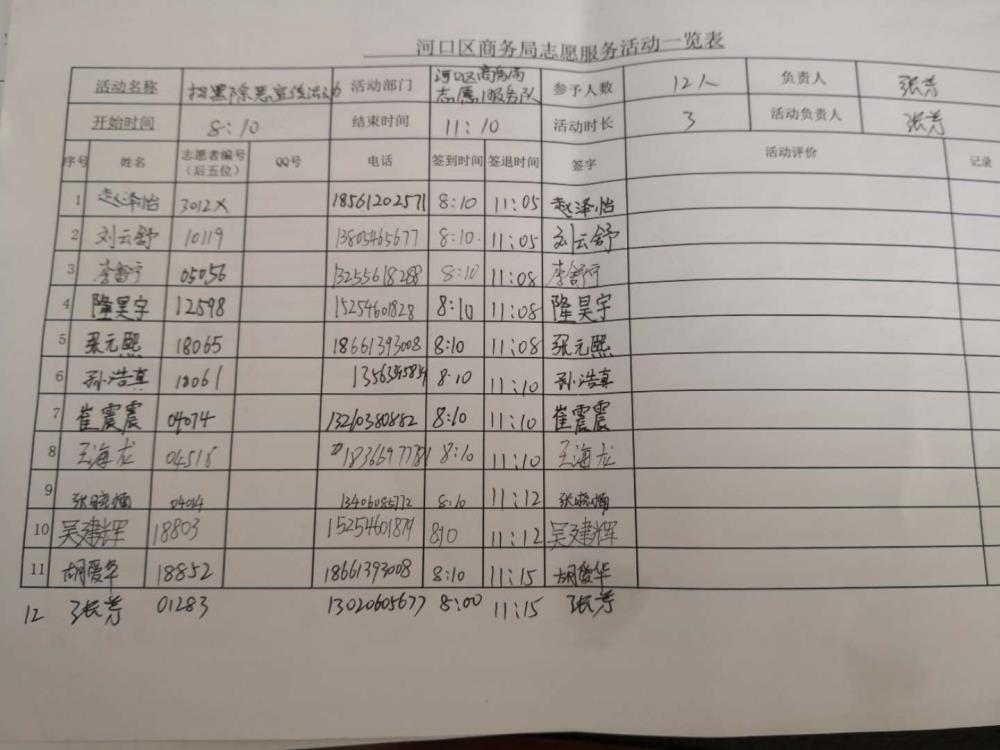 河口区商务局志愿服务活动一览表
活动名称 扫黑除恶宣传活动 活动部门 河口区商务局志愿服务队 参予人数 12人 负责人 张芳
开始时间 8:10 结束时间 11:10 活动时长 3 活动负责人 张芳
序号 姓名 志愿者编号（后五位） QQ号 电话 签到时间 签退时间 签字 活动评价 记录
1 赵泽怡 3012X 18561202571 8:10 11:05 赵泽怡
2 刘云舒 10119 13805465677 8:10 11:05 刘云舒
3 李舒宁 05056 13255618288 8:10 11:08 李舒宁
4 隆昊宇 12598 15254601828 8:10 11:08 隆昊宇
5 张元熙 18065 18661393008 8:10 11:08 张元熙
6 孙浩真 18061 8:10 11:10 孙浩真
7 崔震震 04074 13210380882 8:10 11:10 崔震震
8 王海龙 04516 8:10 11:10 王海龙
9 13406085772 8:10 11:12
10 吴建辉 18803 15254601879 810 11:12 吴建辉
11 胡爱华 18852 18661393008 8:10 11:15 胡爱华
12 张芳 01283 13020605677 8:00 11:15 张芳